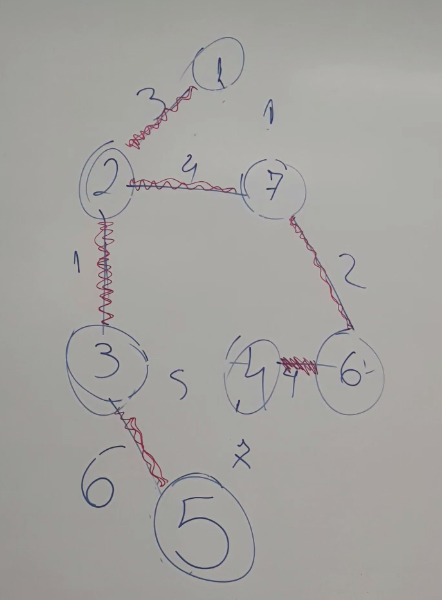 1
3
1
2 4 7
1
2
3 5 4 4 6
7
6
5